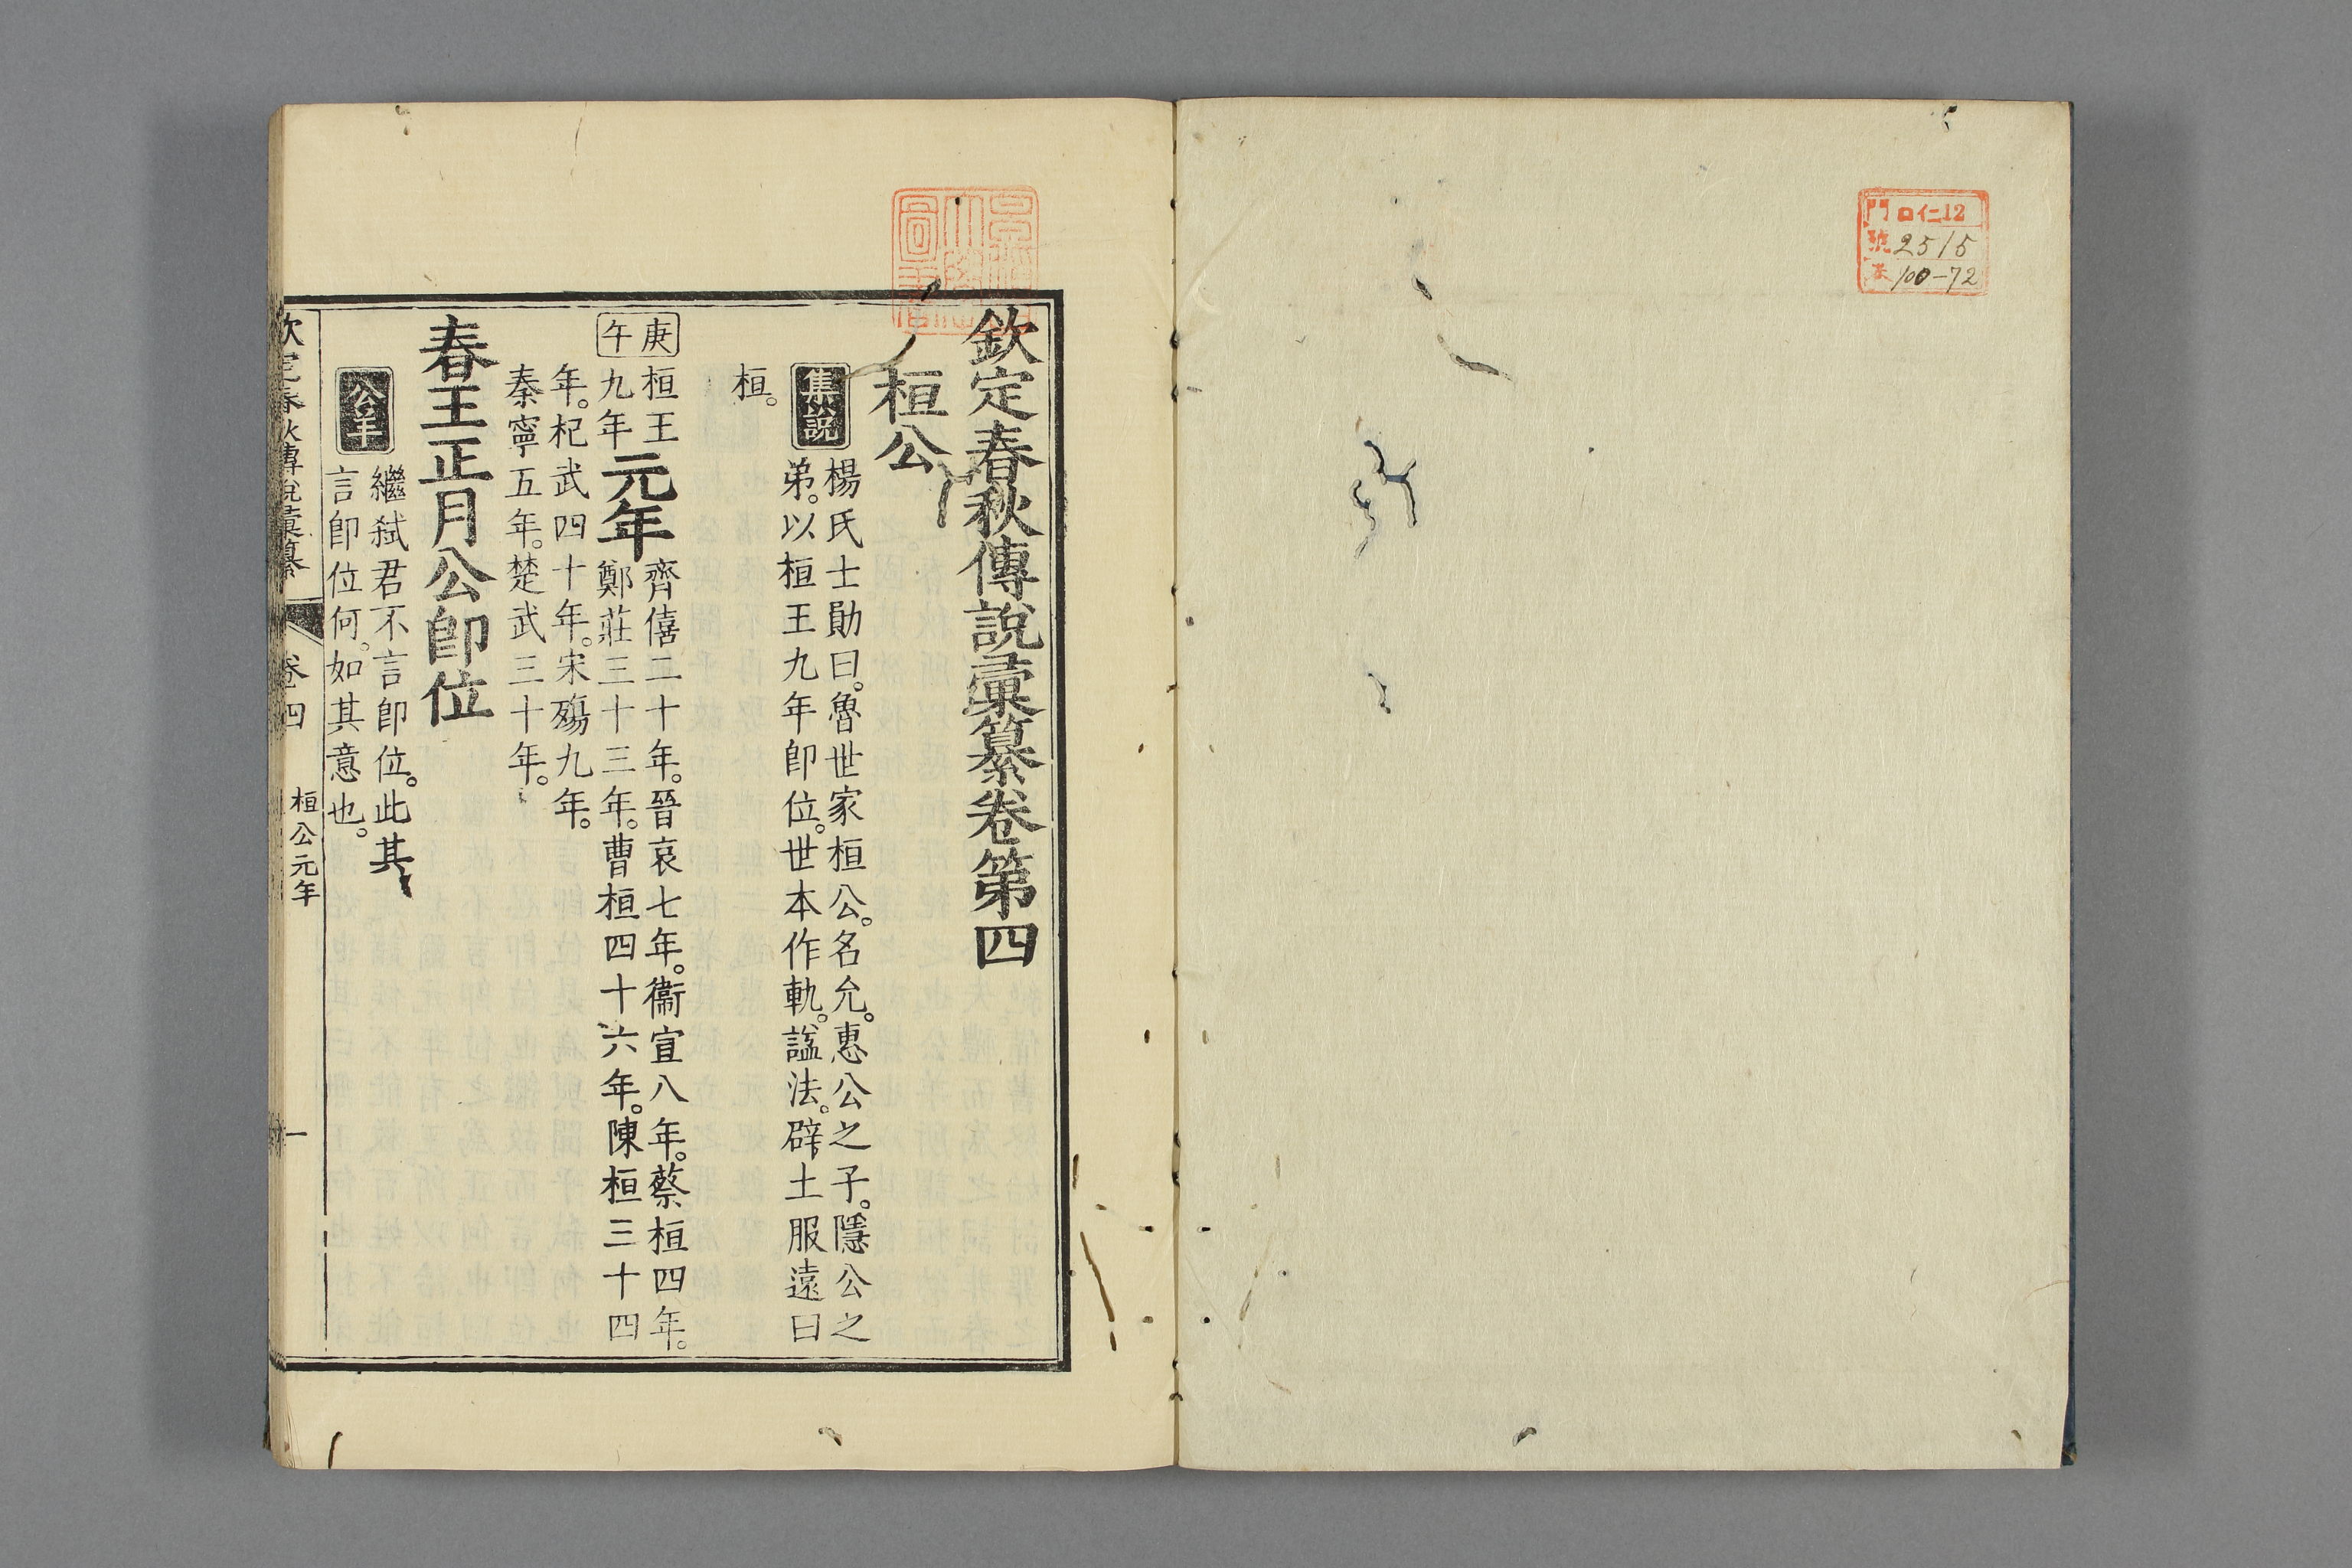 門 ロ仁12
號 2515
巻 100-72
欽定春秋傳說彙纂卷第四
桓公
集說
楊氏士勛曰。魯世家桓公。名允。惠公之子。隱公之
弟。以桓王九年卽位。世本作軌。諡法。辟土服遠曰
桓。
庚午
桓王九年
元年
齊僖二十年。晉哀七年。衞宣八年。蔡桓四年。
鄭莊三十三年。曹桓四十六年。陳桓三十四
年。杞武四十年。宋殤九年。
秦寧五年。楚武三十年。
春王正月公卽位
公羊
繼弑君不言卽位。此其
言卽位何。如其意也。
欽定春秋傳說彙纂
卷四
桓公元年
一